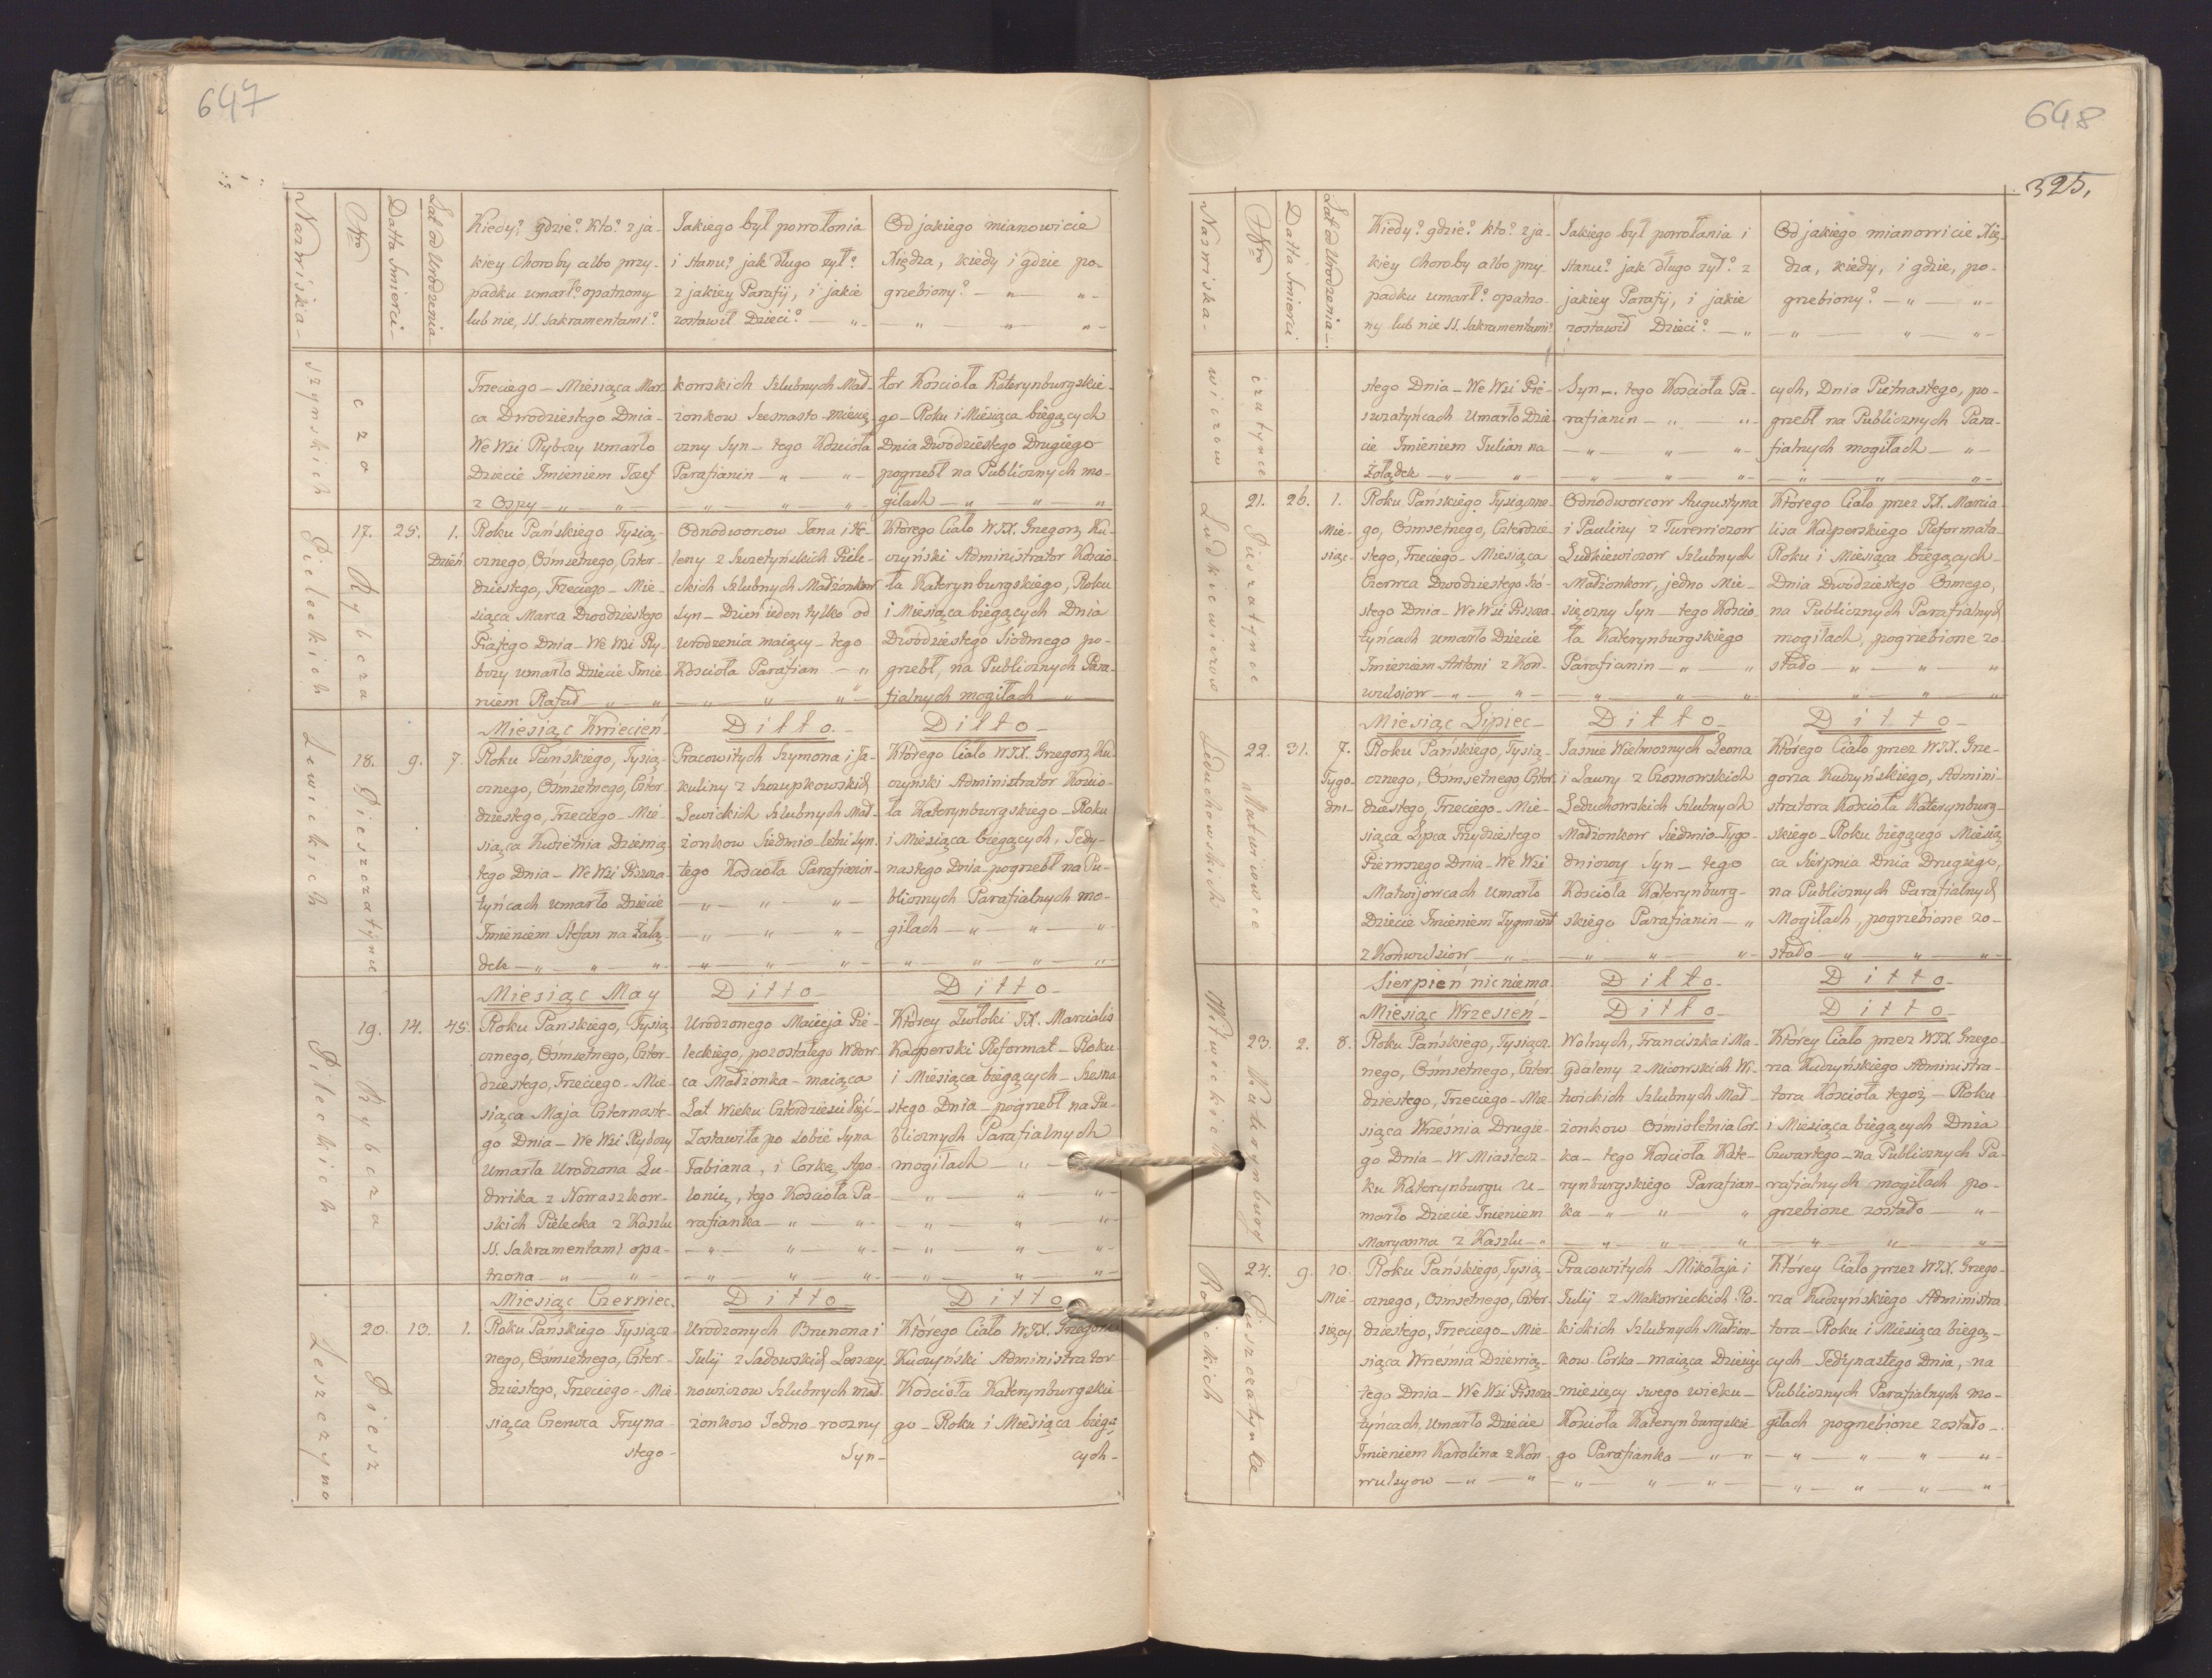 647
Nazwiska
Nro
Datta Śmierci
Lat od Urodzenia
Kiedy? gdzie? kto? z ja-
kiey Choroby albo przy-
padku umarł? opatrzony
lub nie, SS. Sakramentami?
Jakiego był powołania
i stanu? jak długo żył?
z jakiey Parafij, i jakie
zostawił Dzieci? — „ -
Od jakiego mianowicie
Xiędza, kiedy i gdzie po-
grzebiony? — „ — „ -
— „ — „ — „ -
szynskich
czo
Trzeciego - Miesiąca Mar-
ca Dwódziestego Dnia -
We Wsi Rybczy umarło
Dziecie Imieniem Jozef
z Ospy — „ — „ —
kowskich Szlubnych Mał-
żonkow Szesnasto-miesię-
czny Syn - tego Kościoła
Parafianin — „ — „ -
— „ — „ — „ -
tor Kościoła Katerynburgskie-
go - Roku i Miesiąca biegących
Dnia Dwódziestego Drugiego
pogrzebł na Publicznych mo-
giłach — „ — „ — „
Pieleckich
17.
Rybcza
25.
1.
Dzień
Roku Pańskiego Tysiąc-
cznego, Ośmsetnego, Czter-
dziestego, Trzeciego - Mie-
siąca Marca Dwodziestego
Piątego Dnia - We Wsi Ry-
bczy umarło Dziecie Imie-
niem Rafał — „ — „
Odnodworcow Jana i He-
leny z Swzetyńskich Piele-
ckich Szlubnych Małżonkow
Syn - Dzień ieden tylko od
urodzenia maiący - tego
Kościoła Parafian — „
— „ — „ — „ -
Którego Ciało WJX. Grzegorz Ku-
czyński Administrator Kościo-
ła Katerynburgskiego, Roku
i Miesiąca biegących Dnia
Dwódziestego Siodmego po-
grzebł, na Publicznych Para-
fialnych mogiłach — „ —
Miesiąc Kwiecień
Ditto.
Ditto
Lewickich
18.
Pieszczatynce
9.
7.
Roku Pańskiego, Tysią-
cznego, Ośmsetnego, Czter-
dziestego, Trzeciego - Mie-
siąca Kwietnia Dziewią-
tego Dnia - We Wsi Piszcza-
tyńcach umarło Dziecie
Imieniem Stefan na Żołą-
dek — „ — „ — „ -
Pracowitych Szymona i Ja-
kuliny z Szczupkowskich
Lewickich Szlubnych Mał-
żonkow Siedmio-letni Syn.
tego Kościoła Parafianin -
— „ — „ — „ -
— „ — „ — „ -
— „ — „ — „ -
Którego Ciało WJX. Grzegorz Ku-
czyński Administrator Kościo-
ła Katerynburgskiego - Roku
i Miesiąca biegących, Jedy-
nastego Dnia - pogrzebł na Pu-
blicznych Parafialnych mo-
giłach — „ — „ — „
— „ — „ — „ -
Miesiąc May
Ditto
Ditto
Pileckich
19.
Rybcza
14.
45.
Roku Pańskiego, Tysią-
cznego, Ośmsetnego, Czter-
dziestego, Trzeciego - Mie-
siąca Maja Czternaste-
go Dnia - We Wsi Rybczy
Umarła Urodzona Lu-
dwika z Nowaszkow-
skich Pielecka z Kaszlu
SS. Sakramentami opa-
trzona — „ — „ -
Urodzonego Macieja Pie-
leckiego, pozostałego Wdow-
ca Małżonka - maiąca
Lat Wieku Czterdzieści Pięć -
Zostawiła po sobie Syna
Fabiana, i Corkę Apo-
lonię, tego Kościoła Pa-
rafianka — „ — „ -
— „ — „ — „ -
— „ — „ — „ -
Którey Zwłoki JX. Marcialis
Kasperski Reformat - Roku
i Miesiąca biegących - Szesna-
stego Dnia - pogrzebł na Pu-
blicznych Parafialnych
mogiłach — „ —
— „ — „ — „ -
— „ — „ — „ -
— „ — „ — „ -
— „ — „ — „ -
Miesiąc Czerwiec.
Ditto
Ditto
Leszczyno
20.
Piesz
13.
1.
Roku Pańskiego Tysiącz-
nego, Ośmsetnego, Czter-
dziestego, Trzeciego - Mie-
siąca Czerwca Trzyna-
stego -
Urodzonych Brunona i
Julij z Sadowskich Leszczy-
nowiczow Szlubnych mał-
żonkow Jedno-roczny
Syn -
Którego Ciało WJX. Grzegorz
Kuczyński Administrator
Kościoła Katerynburgskie-
go - Roku i Miesiąca biegą-
cych -
648
325.
Nazwiska -
Nro
Datta Śmierci
Lat od Urodzenia -
Kiedy? gdzie? kto? z ja-
kiey Choroby albo przy-
padku umarł? opatrzo-
ny lub nie SS. Sakramentami?
Jakiego był powołania i
stanu? jak długo żył? z
jakiey Parafij, i jakie
zostawił Dzieci? — „
Od jakiego mianowicie Xię-
dza, kiedy, i gdzie, po-
grzebiony? — „ — „ -
— „ — „ — „ -
wiczow
czatynce
stego Dnia - We Wsi Pie-
szczatyńcach Umarło Dzie-
cie Imieniem Julian na
Żołądek — „ — „ -
Syn - tego Kościoła Pa-
rafianin — „ — „ -
— „ — „ — „ -
— „ — „ — „ -
cych, Dnia Piętnastego, po-
grzebł na Publicznych Para-
fialnych mogiłach — „ -
— „ — „ — „ -
Ludkiewiczow
21.
Pieszczatynce
26.
1.
Mie-
siąc -
Roku Pańskiego Tysiączne-
go, Ośmsetnego, Czterdzie-
stego, Trzeciego - Miesiąca
Czerwca Dwodziestego Szó-
stego Dnia - We Wsi Piszcza-
tyńcach umarło Dziecie
Imieniem Antoni z Kon-
wulsiow — „ — „ -
Odnodworcow Augustyna
i Pauliny z Turewiczow
Ludkiewiczow Szlubnych
Małżonkow, jedno Mie-
sięczny Syn - tego Kościo-
ła Katerynburgskiego
Parafianin — „ — „
— „ — „ — „
Którego Ciało przez JX. Marcia-
lisa Kasperskiego Reformata -
Roku i Miesiąca biegących -
Dnia Dwódziestego Osmego,
na Publicznych Parafialnych
mogiłach, pogrzebione zo-
stało — „ — „ — „
— „ — „ — „
Miesiąc Lipiec -
Ditto -
Ditto -
Leduchowskich
22.
Matwiowce
31.
7.
Tygo-
dni -
Roku Pańskiego, Tysią-
cznego, Ośmsetnego, Czter-
dziestego, Trzeciego - Mie-
siąca Lipca Trzydziestego
Pierwszego Dnia - We Wsi
Matwijowcach umarło
Dziecie Imieniem Zygmunt
z Konwulsiow — „ —
Jaśnie Wielmożnych Leona
i Laury z Czosnowskich
Leduchowskich Szlubnych
Małżonkow Siedmio-Tygo-
dniowy Syn - tego
Kościoła Katerynburg-
skiego Parafianin — „
— „ — „ — „ -
Którego Ciało przez WJX. Grze-
gorza Kuczyńskiego, Admini-
stratora Kościoła Katerynburg-
skiego - Roku biegącego Miesią-
ca Sierpnia Dnia Drugiego,
na Publicznych Parafialnych
Mogiłach, pogrzebione zo-
stało — „ — „ — „ -
Sierpień nic niema.
Ditto -
Ditto -
Miesiąc Wrzesień -
Ditto -
Ditto -
Witwickich
23.
Katerynburg
2.
8.
Roku Pańskiego, Tysiącz-
nego, Ośmsetnego, Czter-
dziestego, Trzeciego - Mie-
siąca Września Drugie-
go Dnia - W Miastecz-
ku Katerynburgu u-
marło Dziecie Imieniem
Maryanna z Kaszlu - „
Wolnych, Franciszka i Ma-
gdaleny z Micowskich Wi-
twickich Szlubnych Mał-
żonkow Ośmioletnia Cor-
ka - tego Kościoła Kate-
rynburgskiego Parafian-
ka — „ — „ — „
— „ — „ — „
Którey Ciało przez WJX. Grzego-
rza Kuczyńskiego Administra-
tora Kościoła tegoż - Roku
i Miesiąca biegących Dnia
Czwartego - na Publicznych Pa-
rafialnych mogiłach po-
grzebione zostało — „ -
— „ — „ — „ -
24.
Pieszczatynce
9.
10.
Mie-
sięcy
Roku Pańskiego, Tysią-
cznego, Ośmsetnego, Czter-
dziestego, Trzeciego - Mie-
siąca Września Dziewią-
tego Dnia - We Wsi Piszcza-
tyńcach, umarło Dziecie
Imieniem Karolina z Kon-
wulsyow — „ — „
Pracowitych Mikołaja i
Julij z Makowieckich Ro-
kickich Szlubnych Małżon-
kow Corka - maiąca Dziesięć
miesięcy swego wieku -
Kościoła Katerynburgskie-
go Parafianka — „ — „
— „ — „ — „ -
Którey Ciało przez WJX. Grzego-
rza Kuczyńskiego Administra-
tora - Roku i Miesiąca biegą-
cych - Jedynastego Dnia, - na
Publicznych Parafialnych mo-
giłach pogrzebione zostało -
— „ — „ — „ -
— „ — „ — „ -